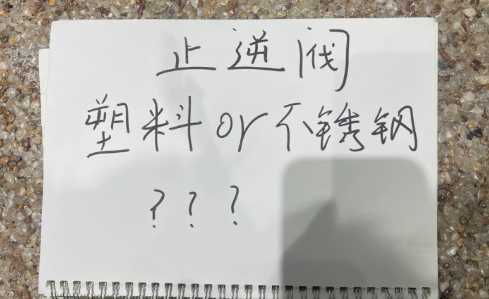 止逆阀
塑料or不锈钢
???